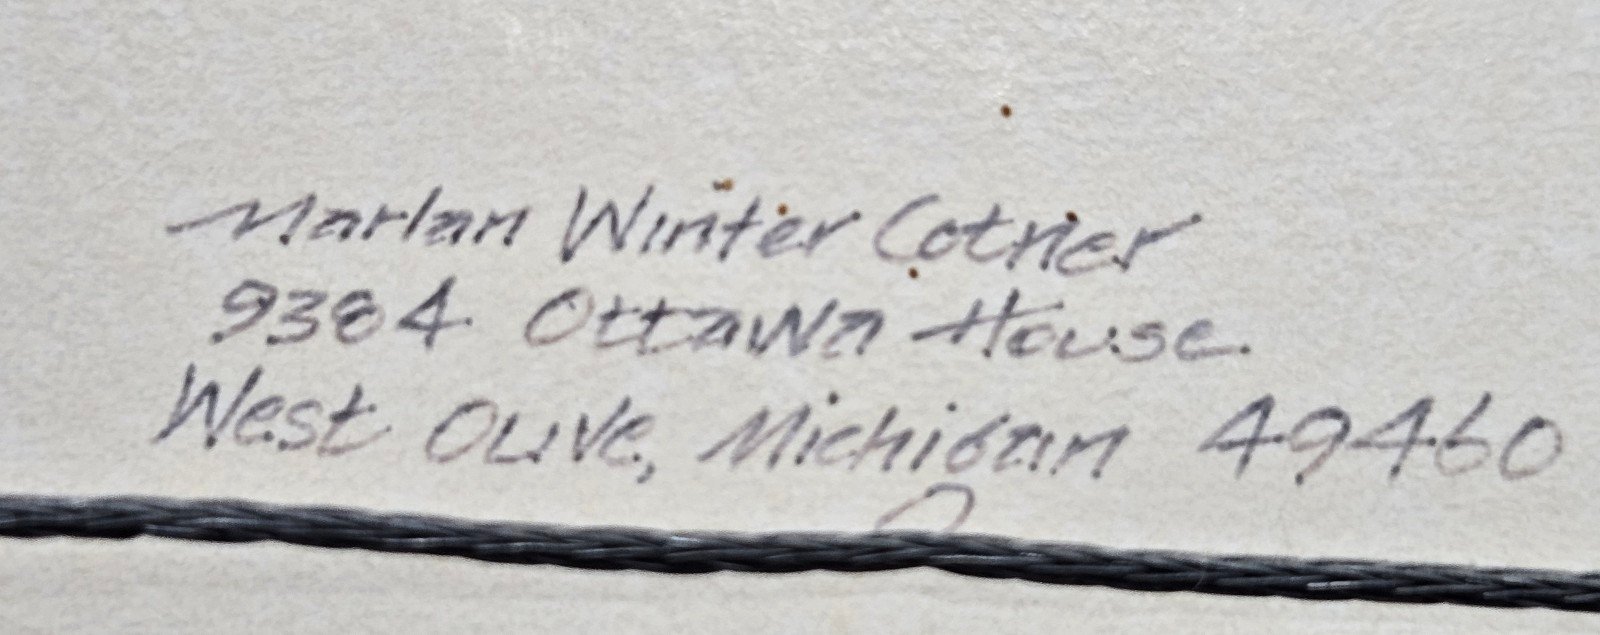 Marlan Winter Cotner
9384 Ottawa House.
West Olive, Michigan 49460